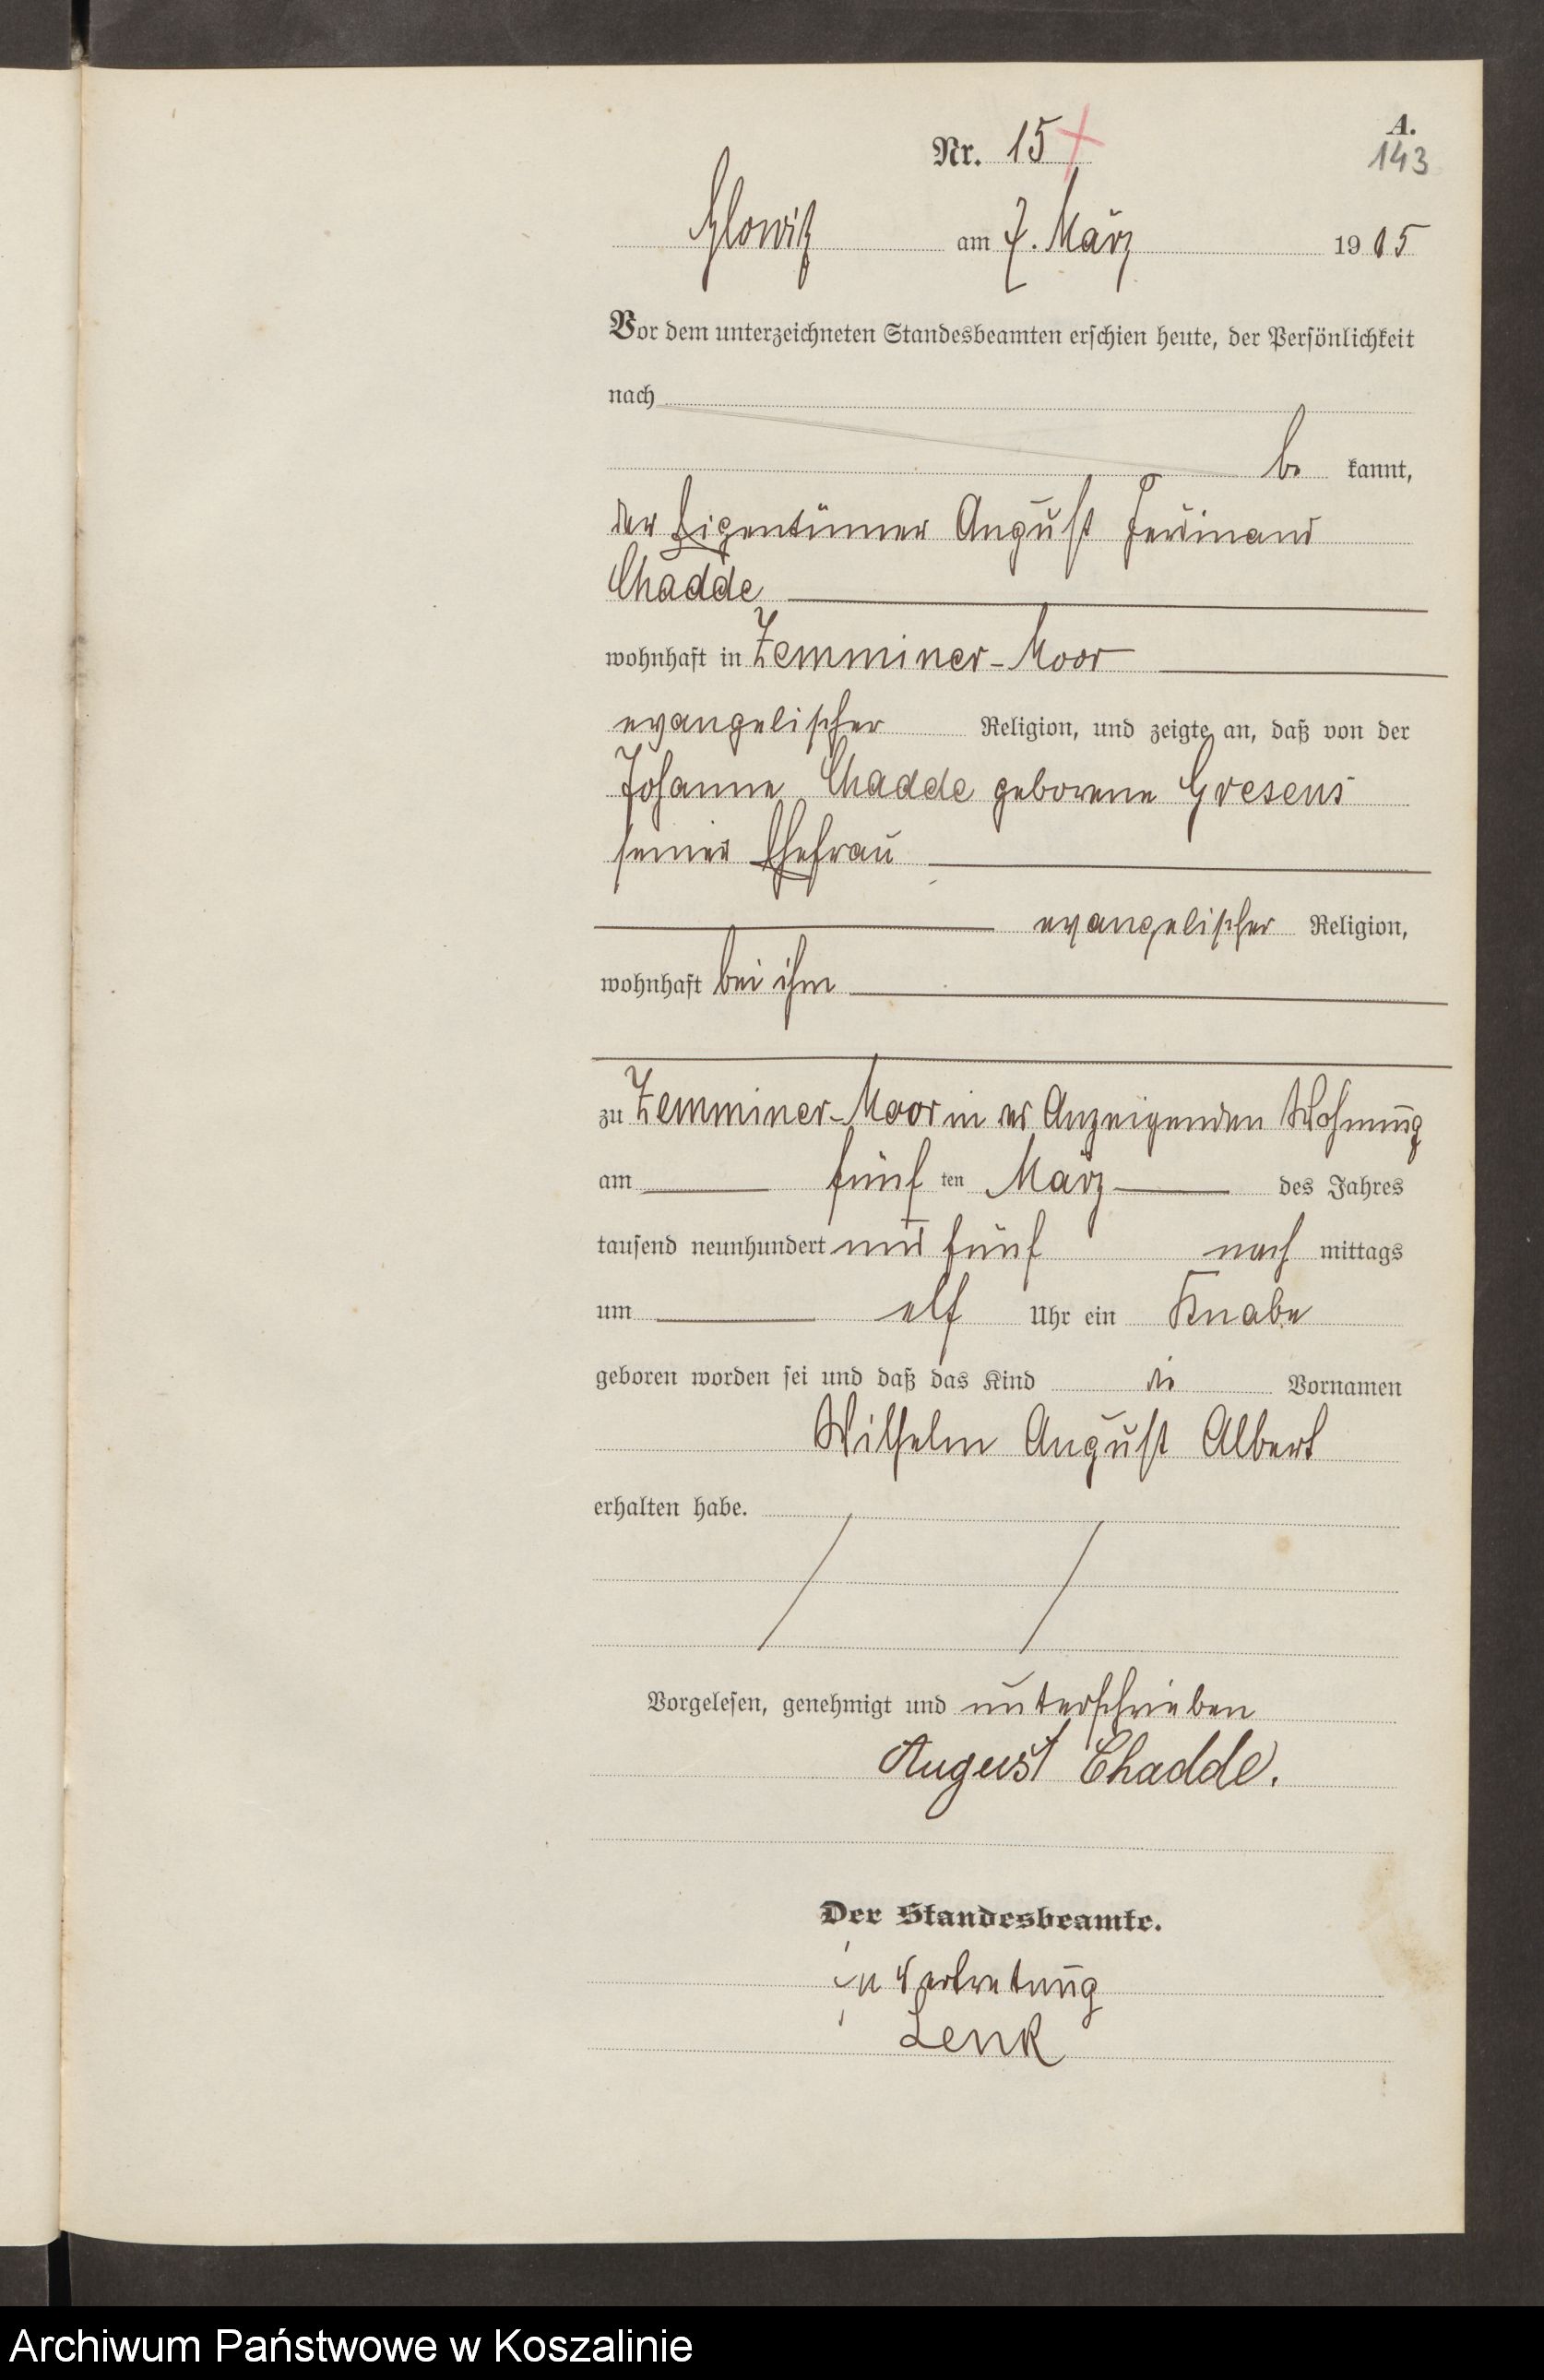 A.
Nr. 15
143
Glowitz am 7. März 1905
Vor dem unterzeichneten Standesbeamten erschien heute, der Persönlichkeit
nach
be kannt,
der Eigentümer August Ferdinand
Chadde
wohnhaft in Zemminer-Moor
evangelischer Religion, und zeigte an, daß von der
Johanne Chadde geborene Gresens
seiner Ehefrau
evangelischer Religion,
wohnhaft bei ihm
zu Zemminer-Moor in des Anzeigenden Wohnung
am fünf ten März des Jahres
tausend neunhundert und fünf nach mittags
um elf Uhr ein Knabe
geboren worden sei und daß das Kind die Vornamen
Wilhelm August Albert
erhalten habe.
Vorgelesen, genehmigt und unterschrieben
August Chadde.
Der Standesbeamte.
In Vertretung
Lenk
Archiwum Państwowe w Koszalinie